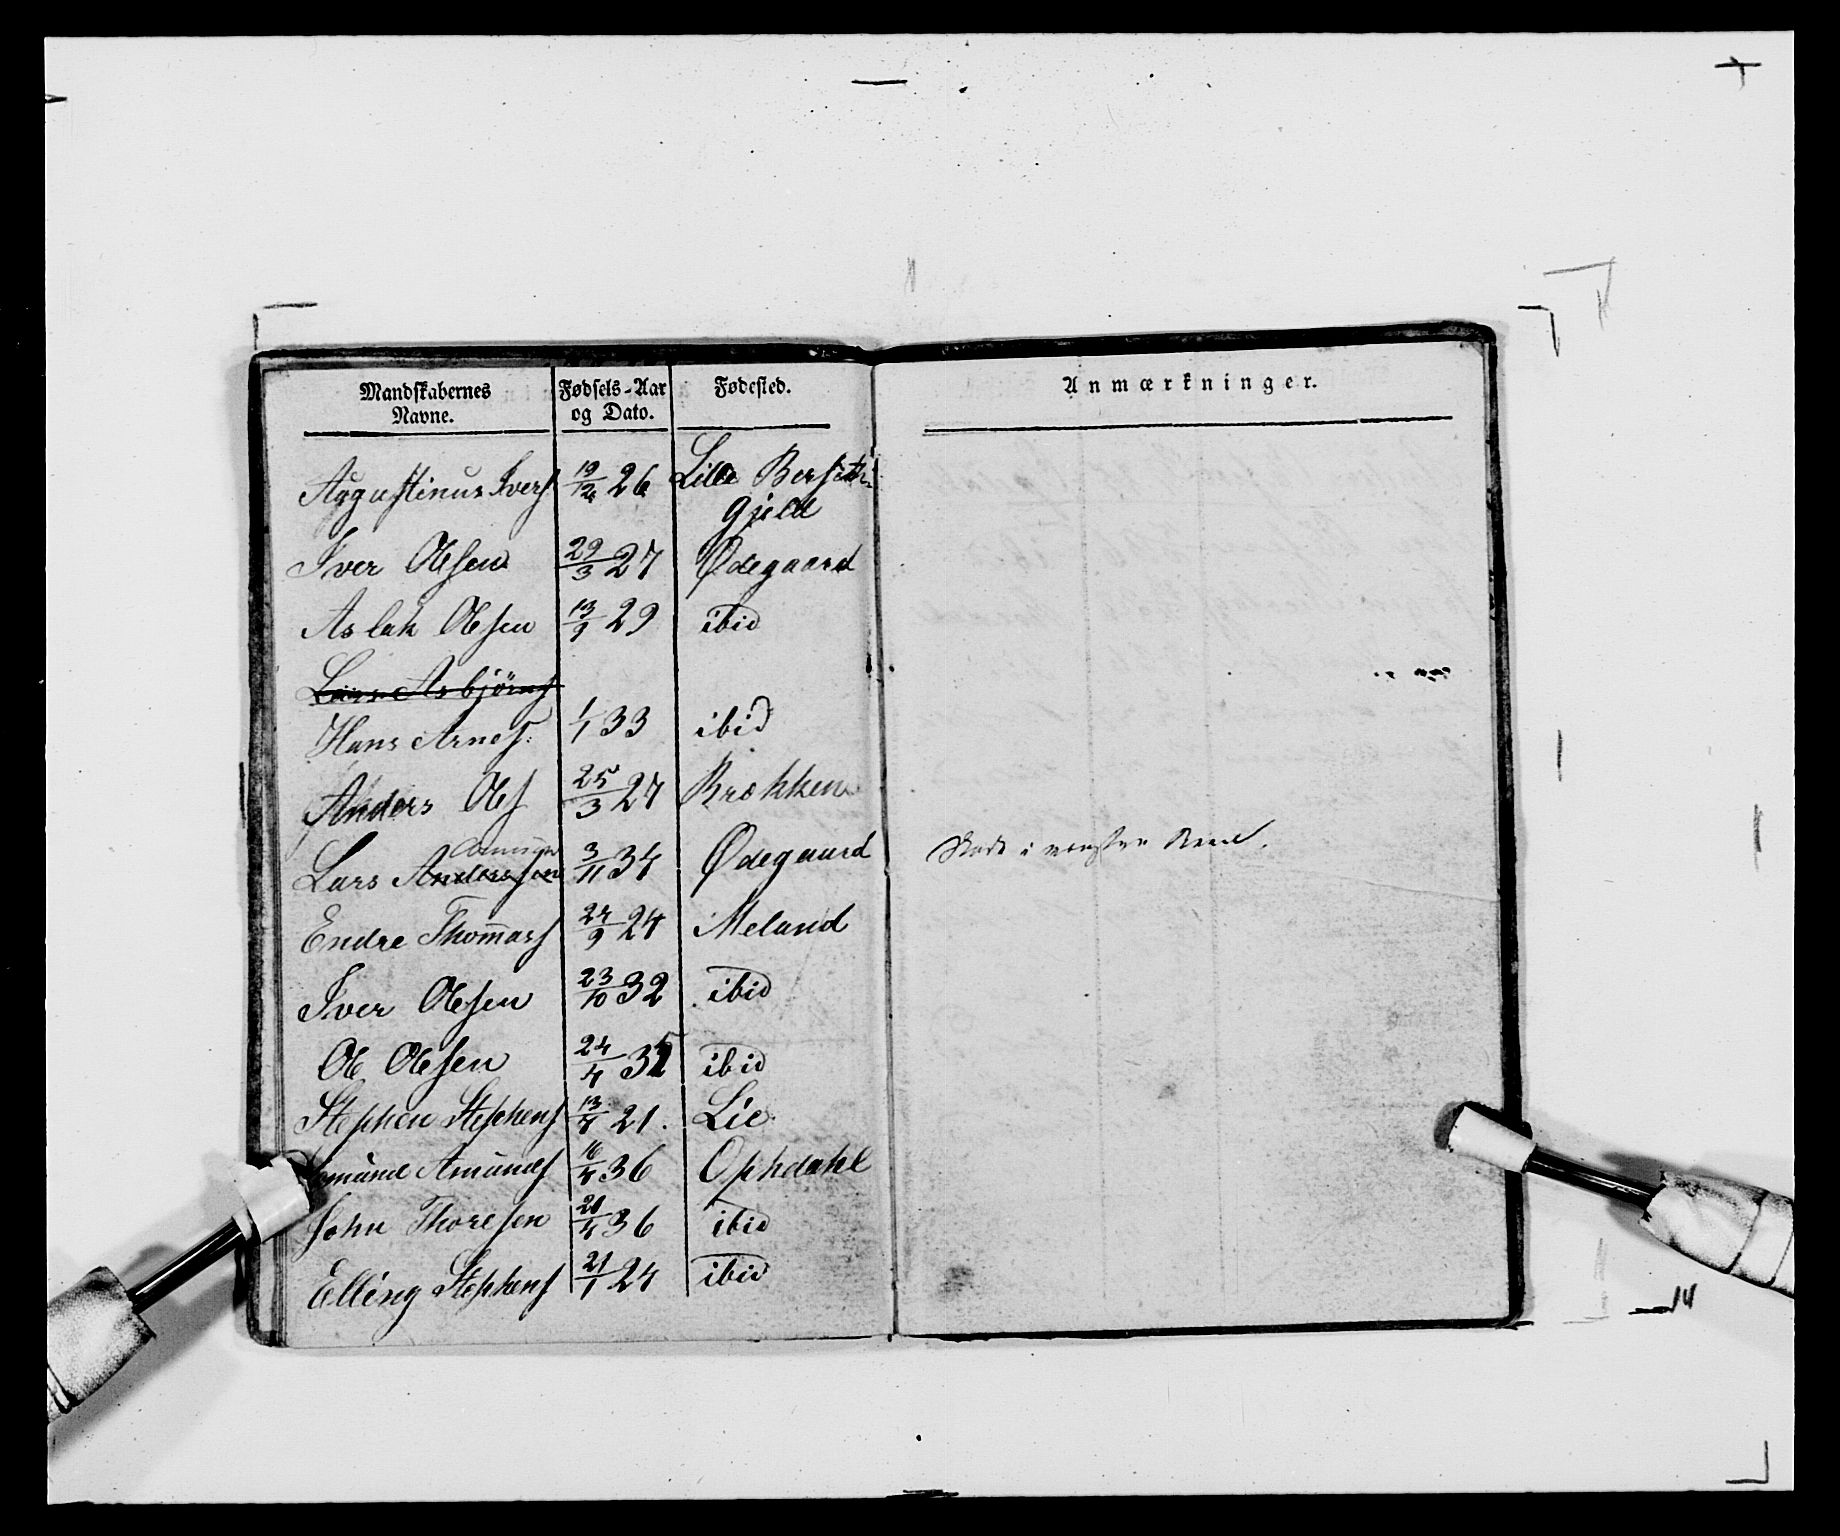 Mandskabernes Navne. Fødsels-Aar og Dato. Fødested. Anmærkninger.
Augustinus Ivers 19/12 26 Lille Berseth:
Gjeld
Iver Olsen 29/3 27 Ødegaard
Aslak Olsen 13/9 29 ibid
Lars Asbjörns
Hans Arnes: 1/1 33 ibid
Anders Ols 25/3 27 Brækken
Lars Anderssen 3/11 34 Ødegaard
Endre Thom̄as 24/9 24 Meland
Iver Olsen 23/10 32 ibid
Ole Olsen 24/4 35 ibid
Stephen Stephens 13/4 21. Lie
mund Amunds 16/4 36 Ophdahl
John Thoresen 20/4 36 ibid
Elling Stephens 21/1 24 ibid
14